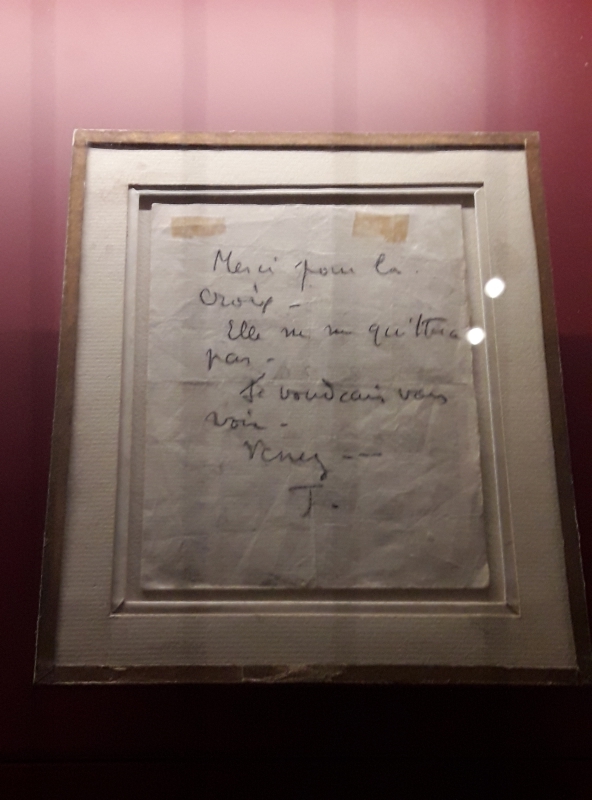 Merci pour la
croix -
Elle ne me quittera
pas -
Je voudrais vous
voir -
Venez ---
J.